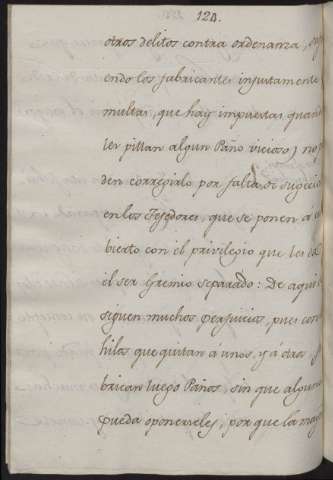 124.
otros delitos contra ordenanza,
endo los fabricantes injustamente
multas, que hay impuestas, quando
les pillan algun Paño vicioso, y no p
den corregirlo por falta de sugecion
en los Texedores, que se ponen à cu
bierto con el privilegio que les da
el ser Gremio separado: De aqui se
siguen muchos perjuicios, pues con
hilos que quitan à unos, y à otros
brican luego Paños, sin que alguno
pueda oponerseles, porque la may